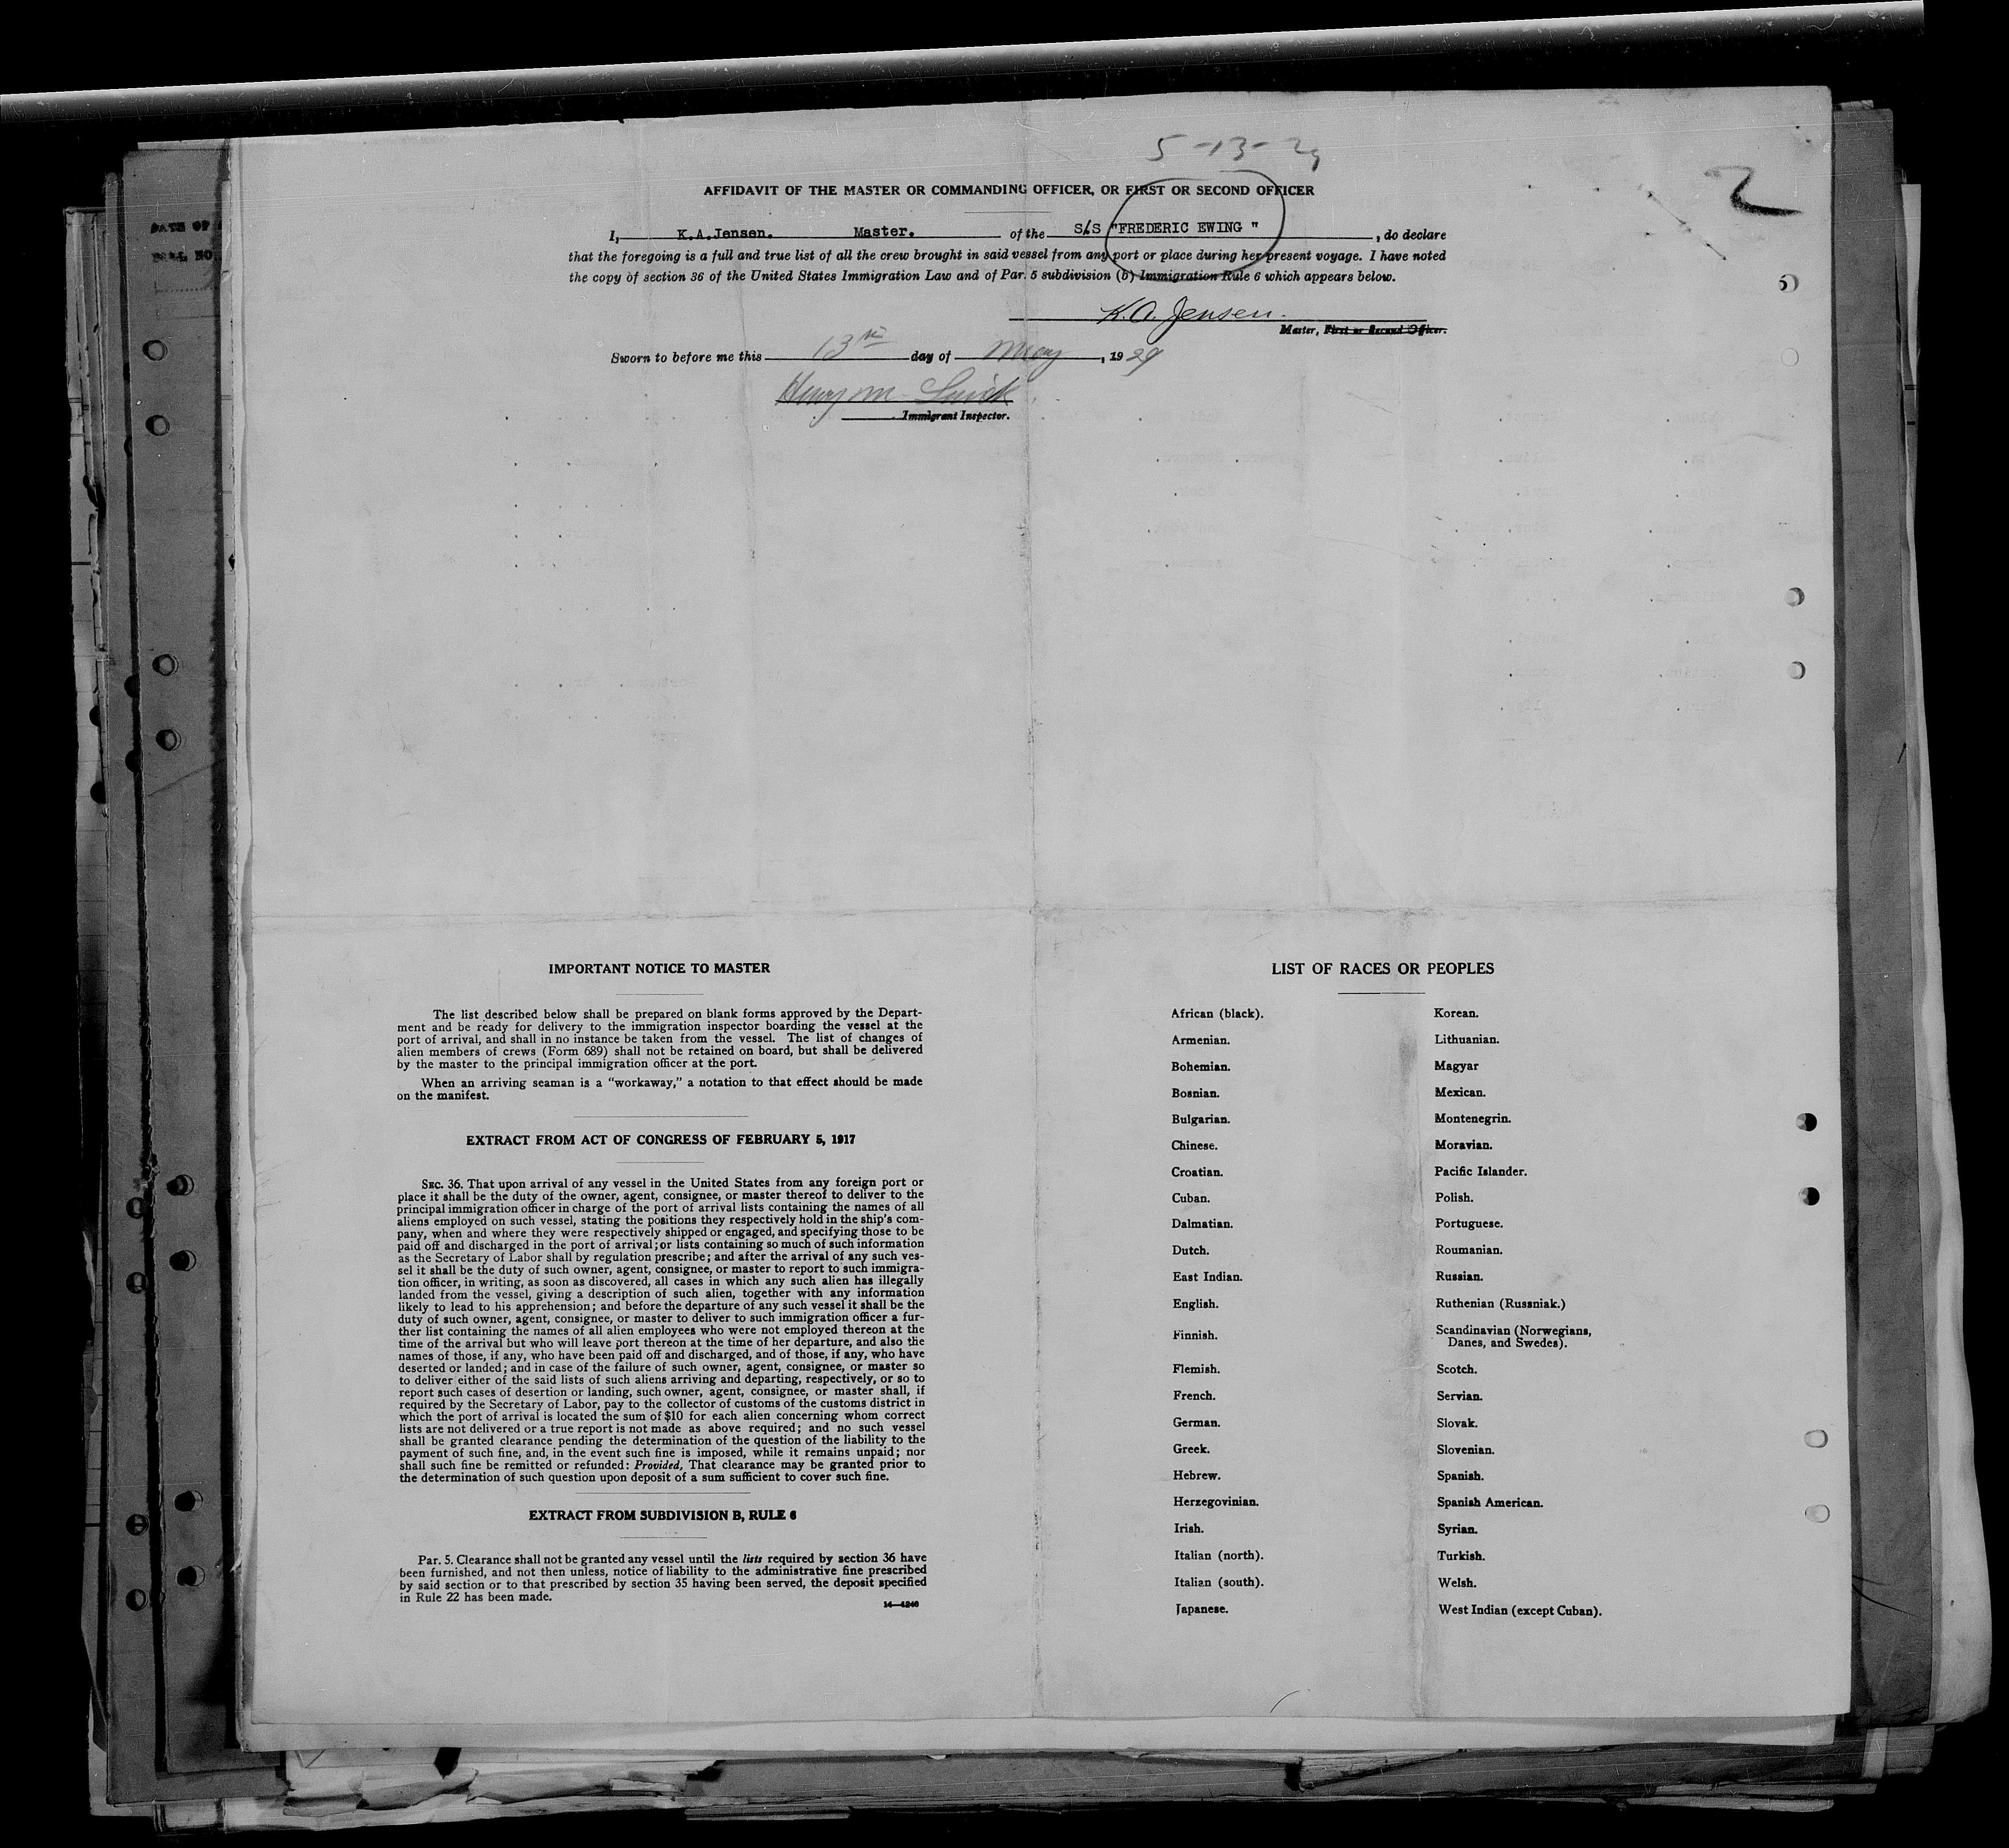 5-13-29
2
AFFIDAVIT OF THE MASTER OR COMMANDING OFFICER, OR FIRST OR SECOND OFFICER
I, K.A.Jensen. Master. of the S/S "FREDERIC EWING ", do declare
that the foregoing is a full and true list of all the crew brought in said vessel from any port or place during her present voyage. I have noted
the copy of section 36 of the United States Immigration Law and of Par. 5 subdivision (b) Immigration Rule 6 which appears below.
K.A. Jensen.
Master, First or Second Officer.
Sworn to before me this 13th day of May, 1929
Henry M
Immigrant Inspector.
DATE OF
IMPORTANT NOTICE TO MASTER
The list described below shall be prepared on blank forms approved by the Depart-
ment and be ready for delivery to the immigration inspector boarding the vessel at the
port of arrival, and shall in no instance be taken from the vessel. The list of changes of
alien members of crews (Form 689) shall not be retained on board, but shall be delivered
by the master to the principal immigration officer at the port.
When an arriving seaman is a "workaway," a notation to that effect should be made
on the manifest.
EXTRACT FROM ACT OF CONGRESS OF FEBRUARY 5, 1917
SEC. 36. That upon arrival of any vessel in the United States from any foreign port or
place it shall be the duty of the owner, agent, consignee, or master thereof to deliver to the
principal immigration officer in charge of the port of arrival lists containing the names of all
aliens employed on such vessel, stating the positions they respectively hold in the ship's com-
pany, when and where they were respectively shipped or engaged, and specifying those to be
paid off and discharged in the port of arrival; or lists containing so much of such information
as the Secretary of Labor shall by regulation prescribe; and after the arrival of any such ves-
sel it shall be the duty of such owner, agent, consignee, or master to report to such immigra-
tion officer, in writing, as soon as discovered, all cases in which any such alien has illegally
landed from the vessel, giving a description of such alien, together with any information
likely to lead to his apprehension; and before the departure of any such vessel it shall be the
duty of such owner, agent, consignee, or master to deliver to such immigration officer a fur-
ther list containing the names of all alien employees who were not employed thereon at the
time of the arrival but who will leave port thereon at the time of her departure, and also the
names of those, if any, who have been paid off and discharged, and of those, if any, who have
deserted or landed; and in case of the failure of such owner, agent, consignee, or master so
to deliver either of the said lists of such aliens arriving and departing, respectively, or so to
report such cases of desertion or landing, such owner, agent, consignee, or master shall, if
required by the Secretary of Labor, pay to the collector of customs of the customs district in
which the port of arrival is located the sum of $10 for each alien concerning whom correct
lists are not delivered or a true report is not made as above required; and no such vessel
shall be granted clearance pending the determination of the question of the liability to the
payment of such fine, and, in the event such fine is imposed, while it remains unpaid; nor
shall such fine be remitted or refunded: Provided, That clearance may be granted prior to
the determination of such question upon deposit of a sum sufficient to cover such fine.
EXTRACT FROM SUBDIVISION B, RULE 6
Par. 5. Clearance shall not be granted any vessel until the lists required by section 36 have
been furnished, and not then unless, notice of liability to the administrative fine prescribed
by said section or to that prescribed by section 35 having been served, the deposit specified
in Rule 22 has been made.
14—4240
LIST OF RACES OR PEOPLES
African (black).
Armenian.
Bohemian.
Bosnian.
Bulgarian.
Chinese.
Croatian.
Cuban.
Dalmatian.
Dutch.
East Indian.
English.
Finnish.
Flemish.
French.
German.
Greek.
Hebrew.
Herzegovinian.
Irish.
Italian (north).
Italian (south).
Japanese.
Korean.
Lithuanian.
Magyar
Mexican.
Montenegrin.
Moravian.
Pacific Islander.
Polish.
Portuguese.
Roumanian.
Russian.
Ruthenian (Russniak.)
Scandinavian (Norwegians,
Danes, and Swedes).
Scotch.
Servian.
Slovak.
Slovenian.
Spanish.
Spanish American.
Syrian.
Turkish.
Welsh.
West Indian (except Cuban).